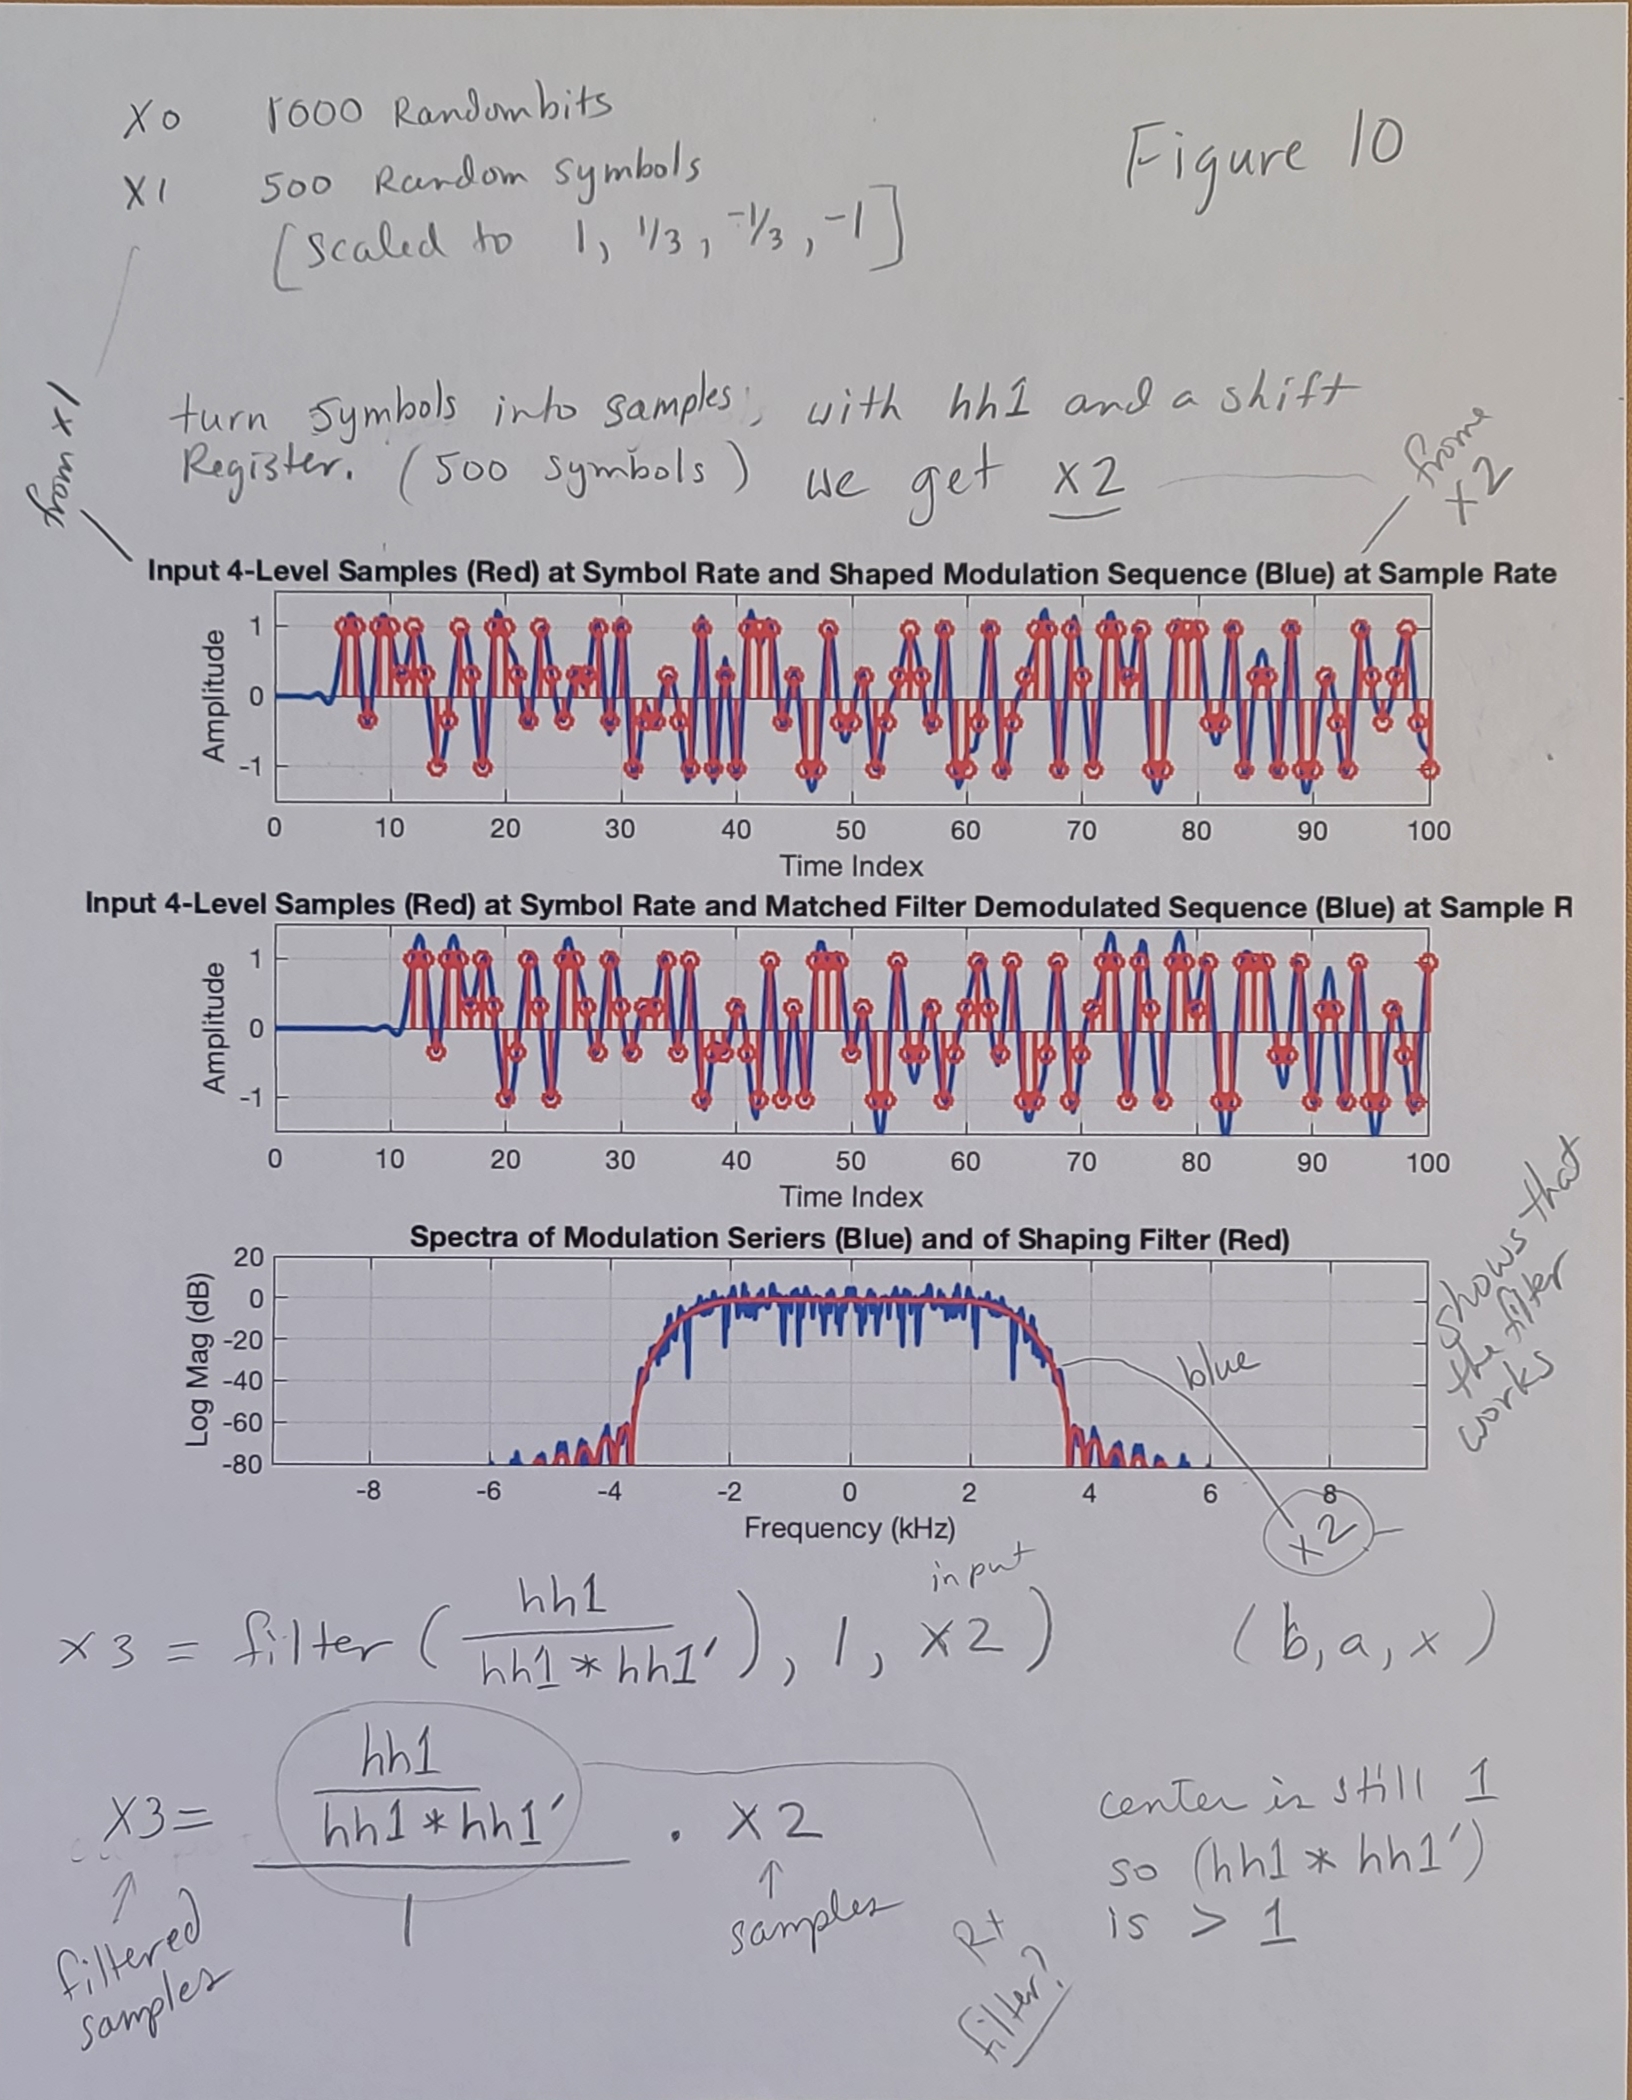 x0 1000 Random bits
Figure 10
x1 500 Random symbols
[scaled to 1, 1/3, -1/3, -1]
turn symbols into samples, with hh1 and a shift
Register. (500 symbols) we get x2
from
x2
x1 may
Input 4-Level Samples (Red) at Symbol Rate and Shaped Modulation Sequence (Blue) at Sample Rate
1
0
-1
Amplitude
0 10 20 30 40 50 60 70 80 90 100
Time Index
Input 4-Level Samples (Red) at Symbol Rate and Matched Filter Demodulated Sequence (Blue) at Sample R
1
0
-1
Amplitude
0 10 20 30 40 50 60 70 80 90 100
Time Index
shows that
the filter
works
Spectra of Modulation Seriers (Blue) and of Shaping Filter (Red)
20
0
-20
-40
-60
-80
Log Mag (dB)
blue
-8 -6 -4 -2 0 2 4 6 8
Frequency (kHz)
x2
input
x3 = filter ( hh1
hh1 * hh1' ), 1, x2 ) (b, a, x)
x3 = hh1
hh1 * hh1' . x2
1
↑
filtered
samples
↑
samples
Rx
filter?
center is still 1
so (hh1 * hh1')
is > 1